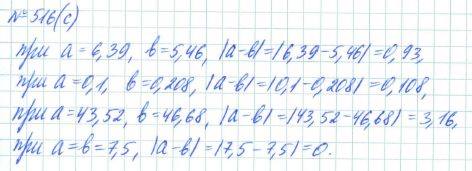 № 516(с)
при a = 6,39, b = 5,46, |a-b| = |6,39 - 5,46| = 0,93,
при a = 0,1, b = 0,208, |a-b| = |0,1 - 0,208| = 0,108,
при a = 43,52, b = 46,68, |a-b| = |43,52 - 46,68| = 3,16,
при a = b = 7,5, |a-b| = |7,5 - 7,5| = 0.